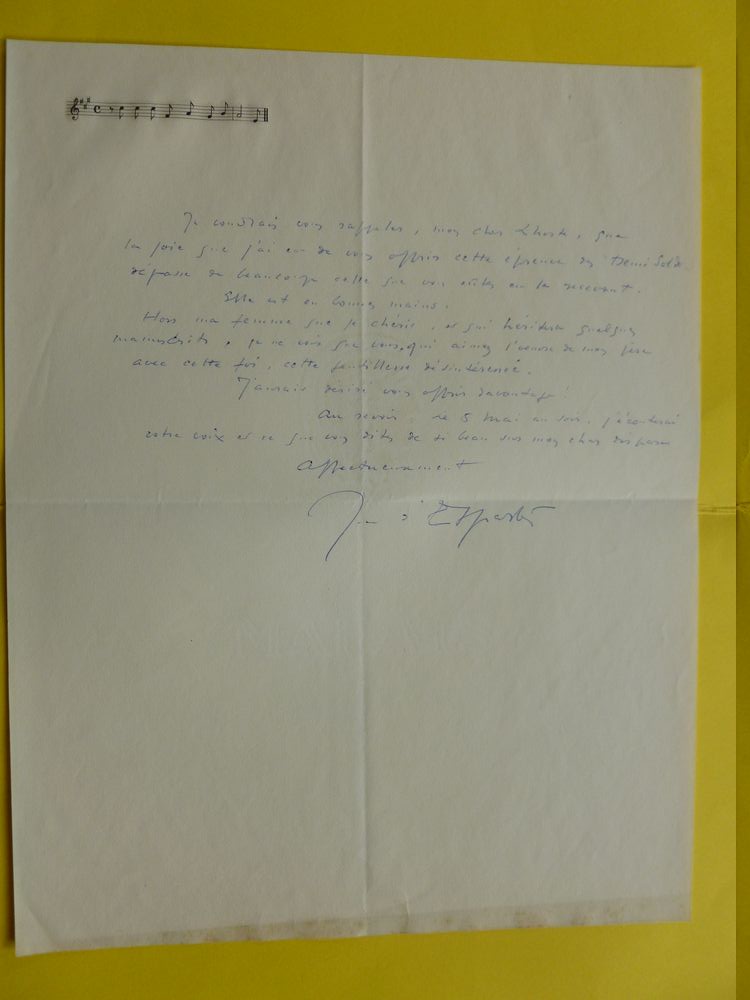 Je voudrais vous rappeler, mon cher Lhoste, que
la joie que j'ai eu de vous offrir cette épreuve des "Demi Solde"
dépasse de beaucoup celle que vous eûtes en la recevant.
Elle est en bonnes mains.
Hors ma femme que je chéris, et qui héritera quelques
manuscrits, je ne vois que vous, qui aimez l'œuvre de mon père
avec cette foi, cette gentillesse désintéressée.
J'aurais désiré vous offrir davantage!
Au revoir. Le 5 Mai au soir, j'écouterai
votre voix et ce que vous dites de si beau sur mon cher disparu
Affectueusement
d'Esparbès